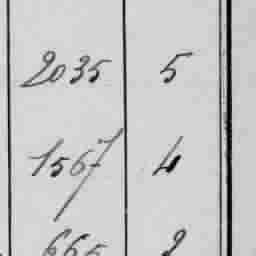 2035 5
1567 4
665 2